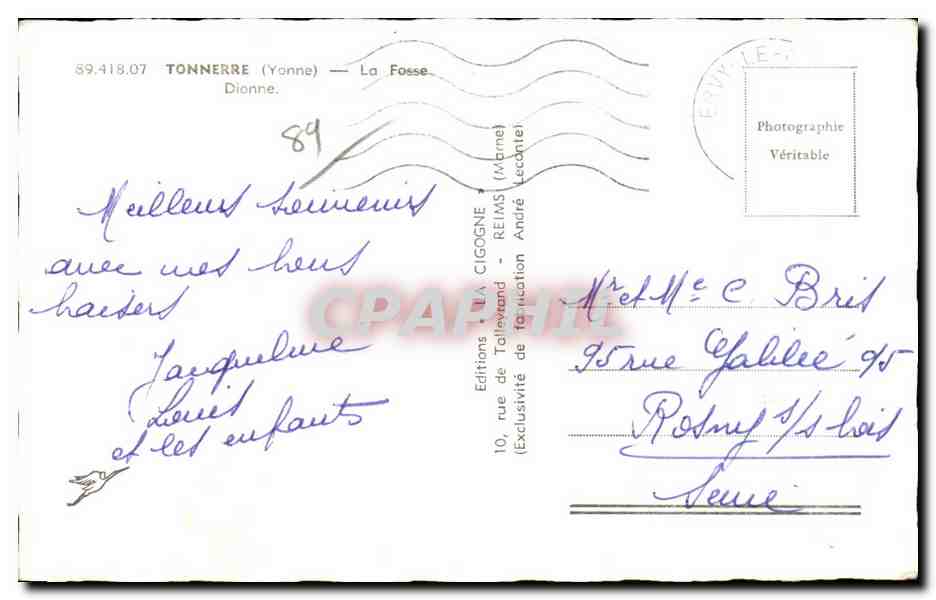 89.418.07 TONNERRE (Yonne) — La Fosse
Dionne.
89
Meilleurs souvenirs
avec mes bons
baisers
Jacqueline
Louis
et les enfants
Editions " LA CIGOGNE "
10, rue de Talleyrand - REIMS (Marne)
(Exclusivité de fabrication André Leconte)
CPAPHIL
ERVY-LE-
Photographie
Véritable
Mr et Me C. Bris
95 rue Galilée 95
Rosny s/s bois
Seine